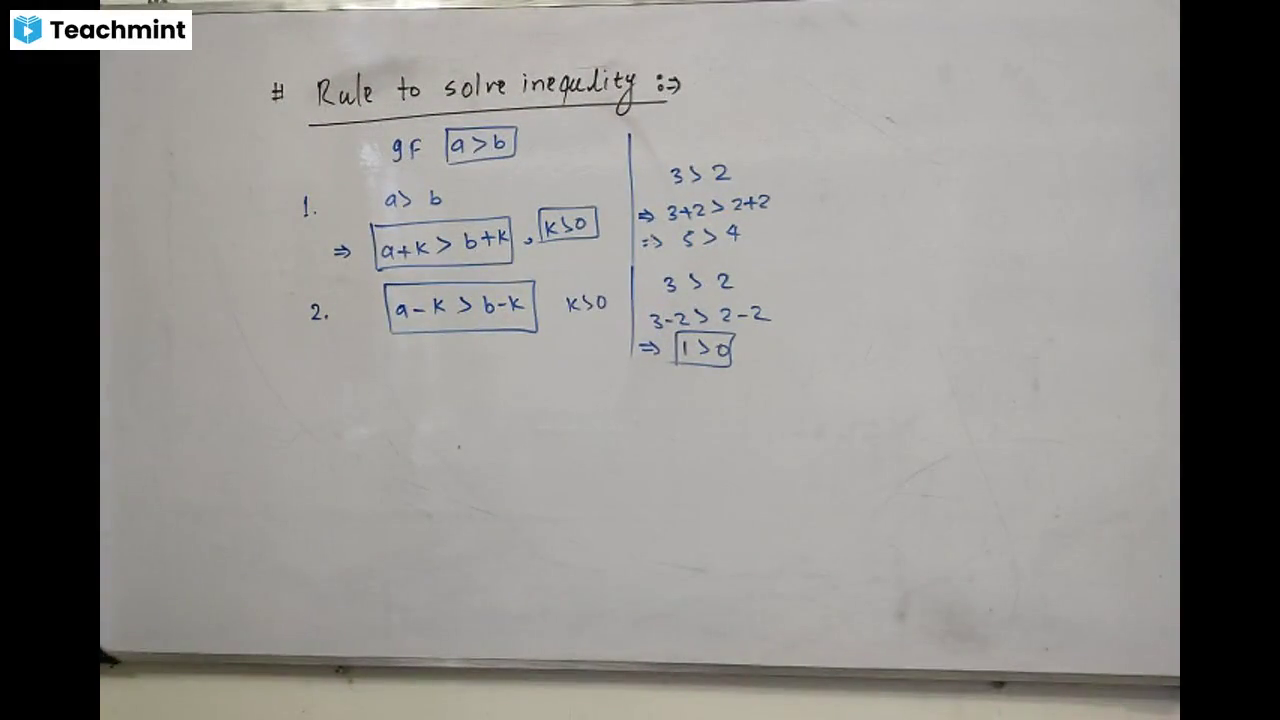 Teachmint
# Rule to solve inequality :⇒
If a > b
1. a > b
⇒ a+k > b+k , k>0
2. a-k > b-k k>0
3 > 2
⇒ 3+2 > 2+2
⇒ 5 > 4
3 > 2
3-2 > 2-2
⇒ 1 > 0